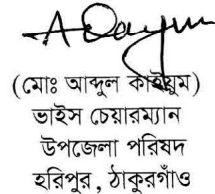 (মোঃ আব্দুল কাইয়ুম)
ভাইস চেয়ারম্যান
উপজেলা পরিষদ
হরিপুর, ঠাকুরগাঁও